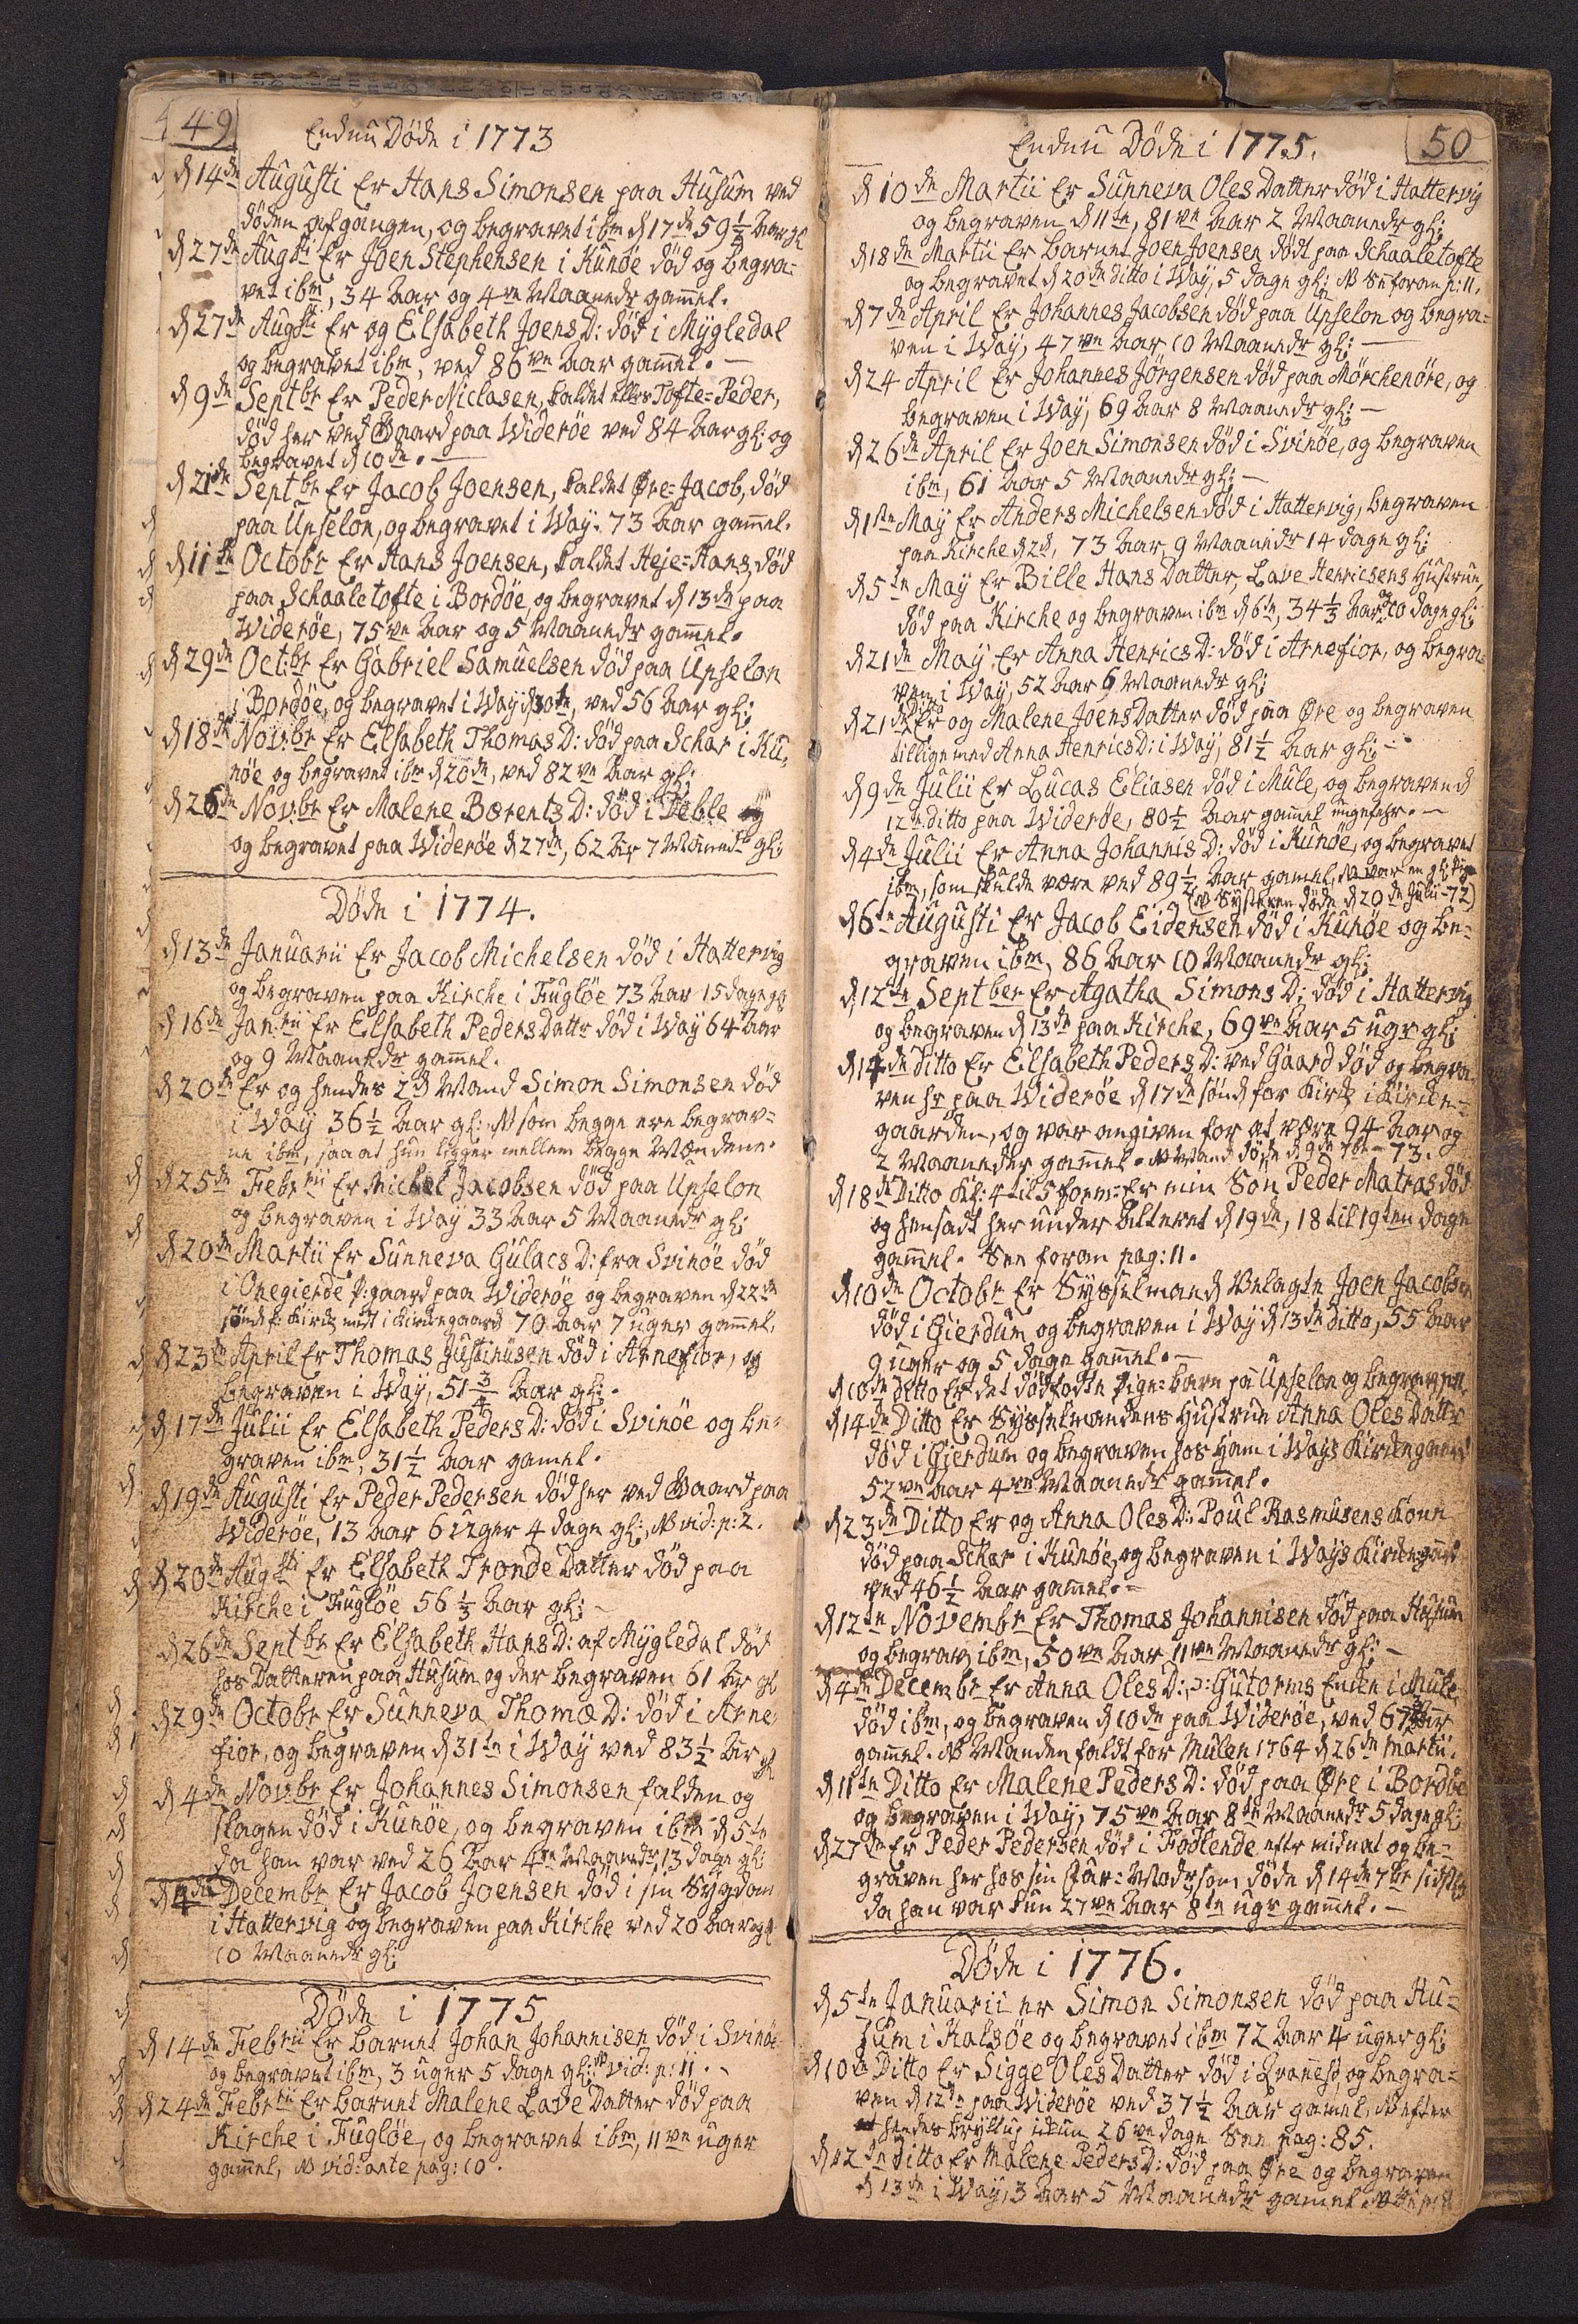 49
Endnu Døde i 1773
d 14de Augusti Er Hans Simonsen paa Husum ved
døden afgangen, og begravet ibm d 17de 59 1/2 Aar gl
d 27de Augsti Er Joen Stephensen i Kunöe död og begra=
vet ibm, 34 Aar og 4re Maaneder gam̄el.
d 27de Augsti Er og Elsabeth Joens D: död i Mygledal
og begravet ibm, ved 86ve Aar gam̄el. —
d 9de Septbr Er Peder Niclasen, kaldet ellers Tofte=Peder,
död her ved Gaard paa Wideröe ved 84 Aar gl: og
begravet d 10de. —
d 21de Septbr Er Jacob Joensen, kaldet Øre=Jacob, död
paa Upselon, og begravet i Way. 73 Aar gam̄el.
d 11te Octobr Er Hans Joensen, kaldet Heje=Hans, död
paa Schaaletofte i Bordöe, og begravet d 13de paa
Wideröe, 75ve Aar og 5 Maaneder gam̄el.
d 29de Octbr Er Gabriel Samuelsen död paa Upselon
i Bordöe, og begravet i Way d 30te, ved 56 Aar gl:
d 18de Novbr Er Elsabeth Thomas D: död paa Schar i Ku=
nöe og begravet ibm d 20de, ved 82ve Aar gl:
d 26de Novbr Er Malene Bærentz D: död i Deble
og begravet paa Wideröe d 27de, 62 Aar 7 Maaneder gl:
Döde i 1774.
d 13de Januarii Er Jacob Michelsen död i Hattervig
og begraven paa Kirche i Fuglöe 73 Aar 15 dage gl
d 16de Janrii Er Elsabeth Peders Dattr död i Way 64 Aar
og 9 Maaneder gam̄el.
d 20de Er og hendes 2d Mand Simon Simonsen död
i Way 36 1/2 Aar gl: NB som begge ere begrav=
ne ibm, saa at hun ligger mellem begge Mændene.
d 25de Febrii Er Michel Jacobsen död paa Upselon
og begraven i Way 33 Aar 5 Maaneder gl:
d 20de Martii Er Sunneva Gulacs D: fra Svinöe död
i Onegierde P:gaard paa Wideröe og begraven d 22de
sönd f: Kirch midt i Kirkegaard 70 Aar 7 uger gam̄el.
d 23de April Er Thomas Justinusen död i Arnefior, og
begraven i Way, 51 3/4 Aar gl:.
d 17de Julii Er Elsabeth Peders D: död i Svinöe og be=
graven ibm, 31 1/2 Aar gamel.
d 19de Augusti Er Peder Pedersen död her ved Gaard paa
Wideröe, 13 Aar 6 uger 4 dage gl:, NB vid: p: 2.
d 20de Augsti Er Elsabeth Tronde Datter död paa
Kirche i Fuglöe 56 1/3 Aar gl: —
d 26de Septbr Er Elsabeth Hans D: af Mygledal död
hos Datteren paa Husum og der begraven 61 Aar gl
d 29de Octobr Er Sunneva Thomæ D: död i Arne=
fior, og begraven d 31te i Way ved 83 1/2 Aar gl
d 4de Novbr Er Johannes Simonsen falden og
slagen död i Kunöe, og begraven ibm d 5te
da han var ved 26 Aar 4re Maaneder 13 dage gl:
d 4de Decembr Er Jacob Joensen död i sin Sygdom
i Hattervig og begraven paa Kirche ved 20 Aar og
10 Maaneder gl:
Döde i 1775
d 14de Febrii Er barnet Johan Johannisen död i Svinöe
og begravet ibm, 3 uger 5 dage gl: NB vid: p: 11. —
d 24de Febrii Er barnet Malene Lave Datter död paa
Kirche i Fuglöe, og begravet ibm, 11ve uger
gam̄el, NB vid: ante pag: 10.
50
Endnu Döde i 1775.
d 10de Martii Er Sunneva Oles Datter död i Hattervig
og begraven d 11te, 81ve Aar 2 Maaneder gl:
d 18de Martii Er barnet Joen Joensen dödt paa Schaaletofte
og begravet d 20de ditto i Way, 5 dage gl: NB See foran p: 11.
d 7de April Er Johannes Jacobsen död paa Upselon og begra=
ven i Way, 47ve Aar 10 Maaneder gl: —
d 24 April Er Johannes Jörgensen död paa Mörchenöre, og
begraven i Way, 69 Aar 8 Maaneder gl: —
d 26de April Er Joen Simonsen död i Svinöe, og begraven
ibm, 61 Aar 5 Maaneder gl: —
d 1ste May Er Anders Michelsen död i Hattervig, begraven
paa Kirche d 2d, 73 Aar 9 Maaneder 14 dage gl:
d 5te May Er Bille Hans Datter, Lave Henricsens Hustrue,
död paa Kirche og begraven ibm d 6te, 34 1/3 Aar og 10 dage gl:
d 21de May Er Anna Henrics D: död i Arnefior, og begra=
ven i Way, 52 Aar 6 Maaneder gl:
d 21de Ditto Er og Malene Joens Datter död paa Øre og begraven
tillige med Anna Henrics D: i Way, 81 1/2 Aar gl: —
d 9de Julii Er Lucas Eliasen död i Mule, og begraven d
12te ditto paa Wideröe, 80 1/2 Aar gam̄el ungefehr. —
d 4de Julii Er Anna Johannis D: död i Kunöe, og begravet
ibm, som skulde være ved 89 1/2 Aar gamel, NB var en gl: Pige
(NB Systeren döde d 20de Julii -72)
d 6te Augusti Er Jacob Eidensen död i Kunöe og be=
graven ibm, 86 Aar 10 Maaneder gl:
d 12te Septber Er Agatha Simons D: död i Hattervig
og begraven d 13de paa Kirche, 69ve Aar 5 uger gl:
d 14de Ditto Er Elsabeth Peders D: ved Gaard död og begra=
ven her paa Wideröe d 17de sönd for Kirch i Kirke=
gaarden, og var angiven for at være 94 Aar og
2 Maaneder gammel. NB Mand döde d 9de 7br -73.
d 18de Ditto Kl: 4 til 5 form: Er min Sön Peder Matras död
og hensadt her under Alteret d 19de, 18 til 19ten dage
gam̄el. See foran pag: 11.
d 10de Octobr Er Sysselmand Velagte Joen Jacobsen
död i Gierdum og begraven i Way d 13de Ditto, 55 Aar
9 uger og 5 dage gammel. —
d 10de Ditto Er det dödfödte Pige=barn paa Upselon og begraven p:11.
d 14de Ditto Er Sysselmandens Hustrue Anna Oles Dattr
död i Gierdum og begraven hos Ham i Ways Kirkegaard
52ve Aar 4re Maaneder gam̄el.
d 23de Ditto Er og Anna Oles D: Poul Rasmusens Kone
död paa Schar i Kunöe, og begraven i Ways Kirkegaard
ved 46 1/2 Aar gam̄el. =
d 12te Novembr Er Thomas Johannisen död paa Husum
og begrav: ibm, 50ve Aar 11ve Maaneder gl: —
d 4de Decembr Er Anna Oles D: ɔ: Gutorms Enke i Mule
död ibm, og begraven d 10de paa Wideröe, ved 67 Aar
gammel. NB Manden faldt for Mulen 1764 d 26de Martii.
d 11te Ditto Er Malene Peders D: död paa Øre i Bordöe
og begraven i Way, 75ve Aar 8te Maaneder 5 dage gl:
d 27de Er Peder Pedersen död i Fodlende efter midnat og be=
graven her hos sin Får=Moder som döde d 14de 7br sidstl:
da han var kun 27ve Aar 8te uger gam̄el. —
Döde i 1776.
d 5te Januarii er Simon Simonsen död paa Hu=
sum i Kalsöe og begravet ibm 72 Aar 4 uger gl:
d 10de Ditto Er Sigge Oles Datter död i Qvanesd, og begra=
ven d 12te paa Wideröe ved 37 1/2 Aar gamel, NB efter
hendes bryllup ikun 26ve dage See pag: 85.
d 12te Ditto Er Malene Peders D: död paa Øre og begraven
d 13de i Way, 3 Aar 5 Maaneder gamel NB